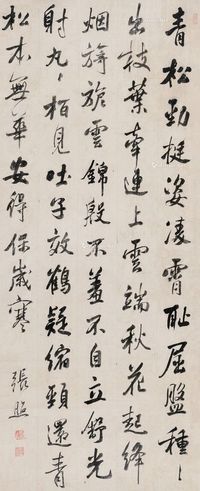 青松勁挺姿凌霄恥屈盤種〻
出枝葉牽連上雲端秋花起絳
烟旖旎雲錦殷不羞不自立舒光
射丸〻栢見吐子效鶴疑縮頸還青
松本無華安得保歲寒 張照